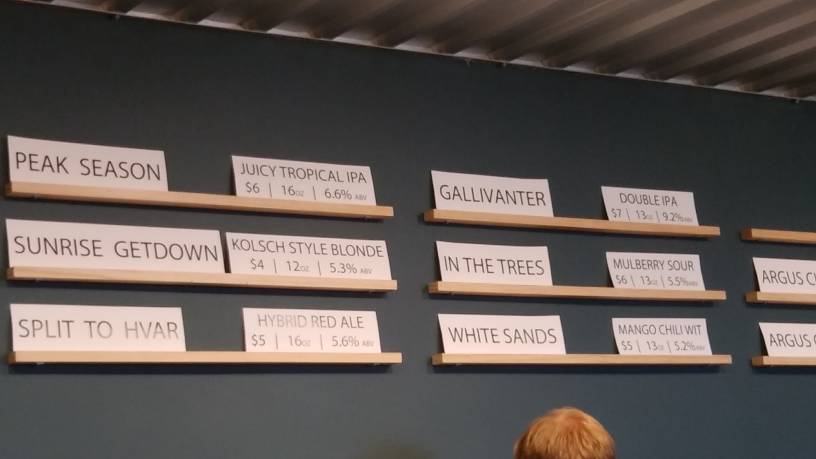 PEAK SEASON
JUICY TROPICAL IPA
$6 | 16OZ | 6.6% ABV
SUNRISE GETDOWN
KOLSCH STYLE BLONDE
$4 | 12OZ | 5.3% ABV
SPLIT TO HVAR
HYBRID RED ALE
$5 | 16OZ | 5.6% ABV
GALLIVANTER
DOUBLE IPA
$7 | 13OZ | 9.2% ABV
IN THE TREES
MULBERRY SOUR
$6 | 13OZ | 5.5% ABV
WHITE SANDS
MANGO CHILI WIT
$5 | 13OZ | 5.2% ABV
ARGUS
ARGUS